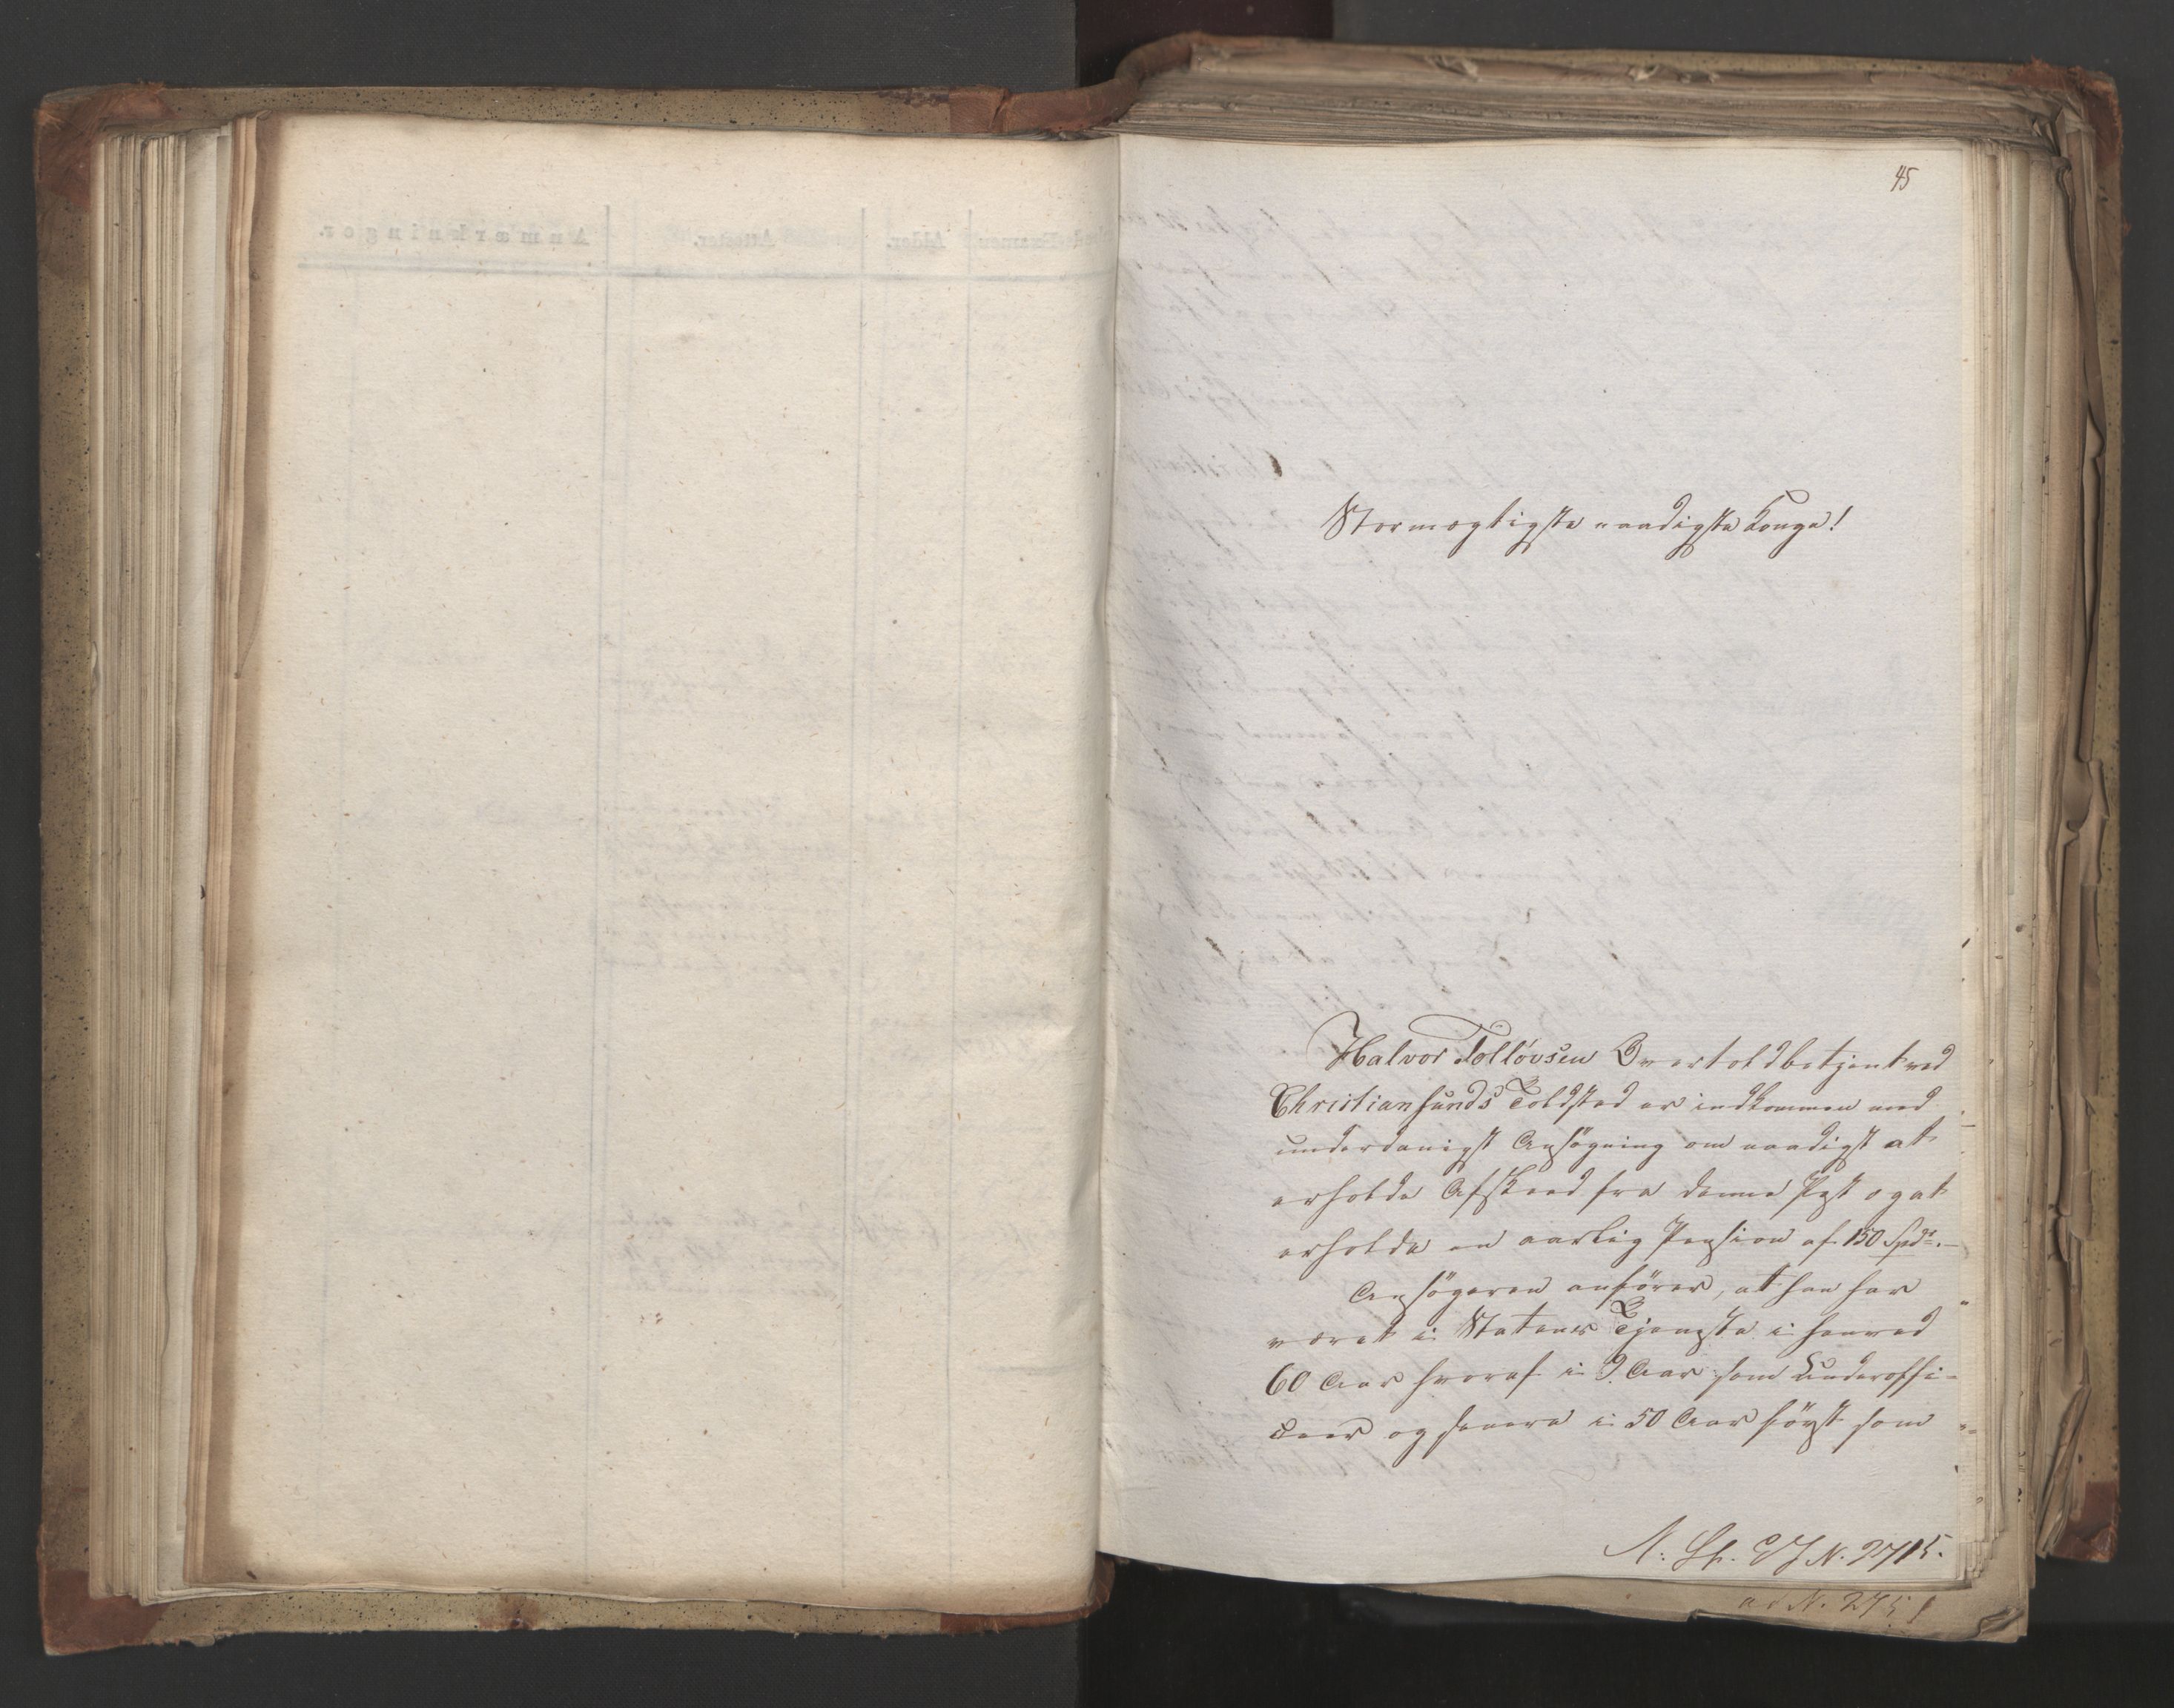 45
Stormægtigste naadigste Konge!
Halvor Tollövsen Overtoldbetjent ved
Christiansunds Toldsted er indkommen med
underdanigst Ansögning om naadigst at
erholde Afskeed fra denne Post og at
erholde en aarlig Pension af 150 Spdr.
Ansögeren anförer, at han har
været i Statens Tjeneste i henved
60 Aar hvoraf i 9 Aar som Underoffi-
ceer og senere i 50 Aar först som
N. 2715.